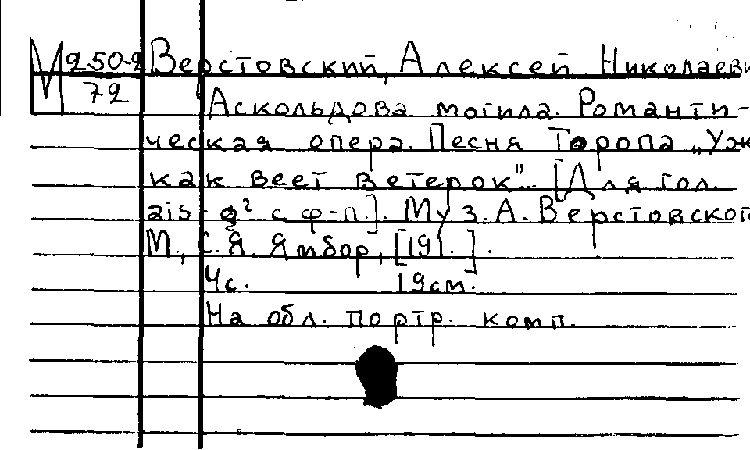 М 250-2 Верстовский, Алексей Николаеви
72 Аскольдова могила. Романти-
ческая опера. Песня Торопа „Уж
как веет ветерок". [Для гол.
ais- g² с ф-п.]. Муз. А. Верстовского
М., С.Я. Ямбор, [191.].
4с. 19см.
На обл. портр. комп.